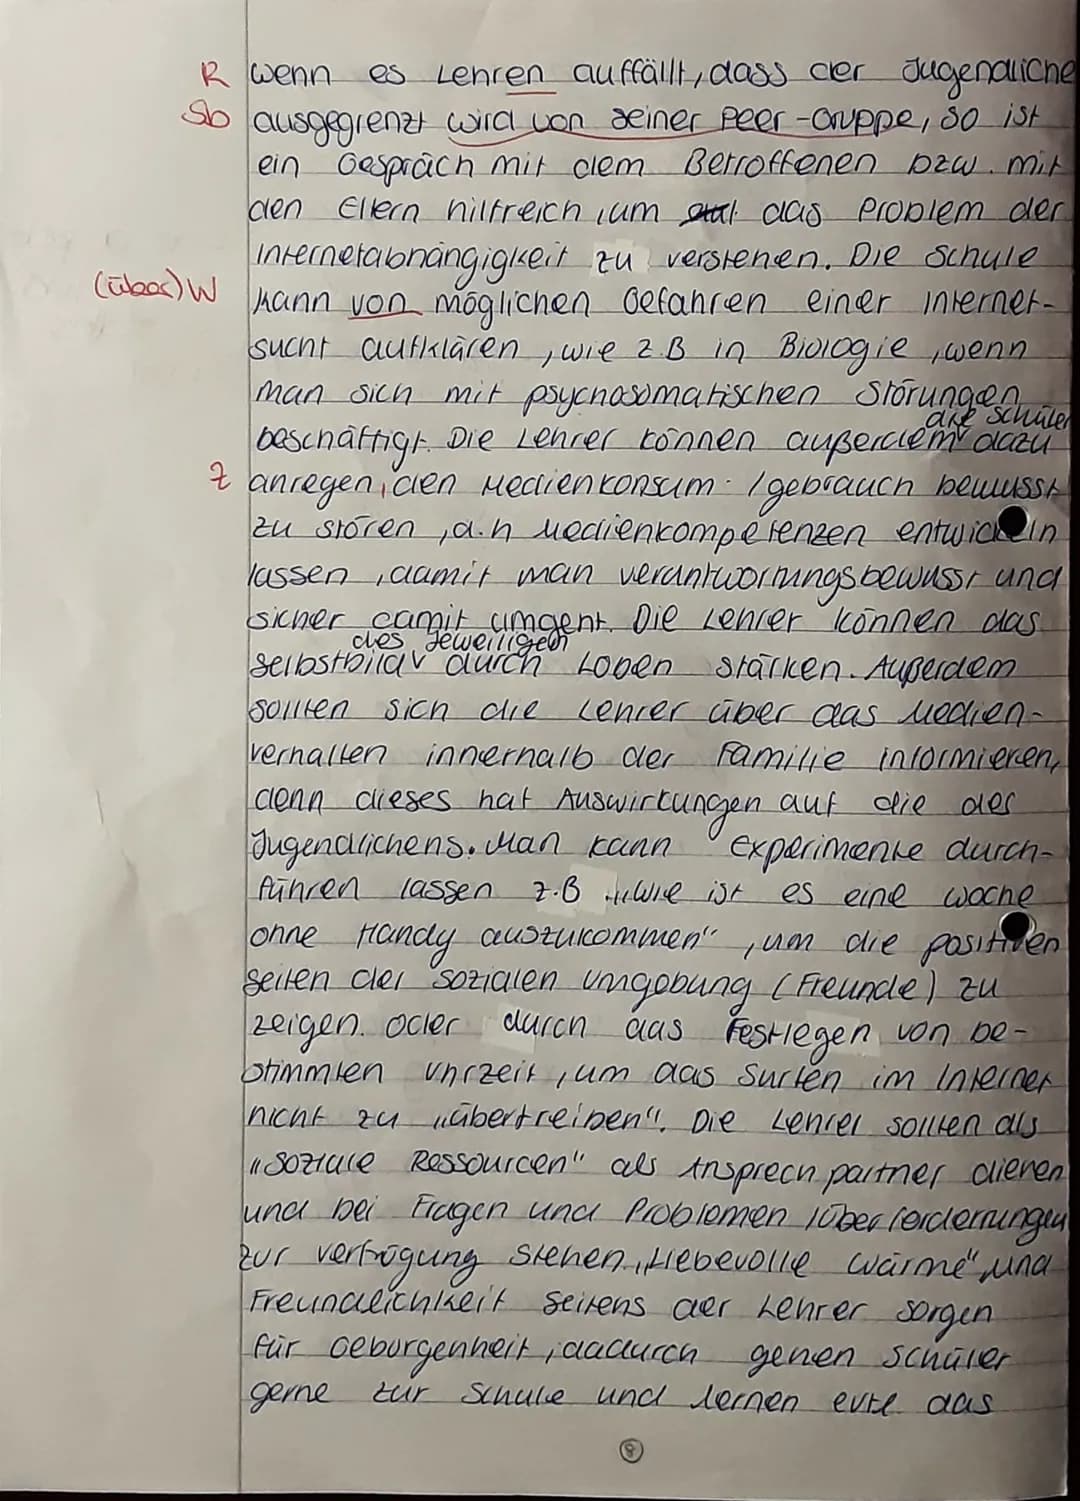 R wenn es Lehren auffällt, dass der Jugendliche
Sb ausgegrenzt wird von seiner Peer-Gruppe, so ist
ein Gespräch mit dem Betroffenen bzw. mit
den Eltern hilfreich, um das Problem der
Internetabhängigkeit zu verstehen. Die Schule
(über) W kann von möglichen Gefahren einer Internet-
sucht aufklären, wie z.B in Biologie, wenn
man sich mit psychosomatischen Störungen
die Schüler
beschäftigt. Die Lehrer können außerdem dazu
Z anregen, den Medienkonsum /gebrauch bewusst
zu stören, d.h Medienkompetenzen entwickeln
lassen, damit man verantwortungsbewusst und
sicher damit umgeht. Die Lehrer können das
des jeweiligen
Selbstbild durch Loben stärken. Außerdem
sollten sich die Lehrer über das Medien-
verhalten innerhalb der Familie informieren,
denn dieses hat Auswirkungen auf die des
Jugendlichens. Man kann Experimente durch-
führen lassen z.B „Wie ist es eine Woche
ohne Handy auszukommen“, um die positiven
Seiten der sozialen Umgebung (Freunde) zu
zeigen. Oder durch das Festlegen von be-
stimmten Uhrzeit, um das Surfen im Internet
nicht zu „übertreiben“. Die Lehrer sollten als
„Soziale Ressourcen“ als Ansprechpartner dienen
und bei Fragen und Problemen /Überforderrungen
zur Verfügung stehen. „Liebevolle Wärme“ und
Freundlichkeit seitens der Lehrer sorgen
für Geborgenheit, dadurch gehen Schüler
gerne zur Schule und lernen das
8